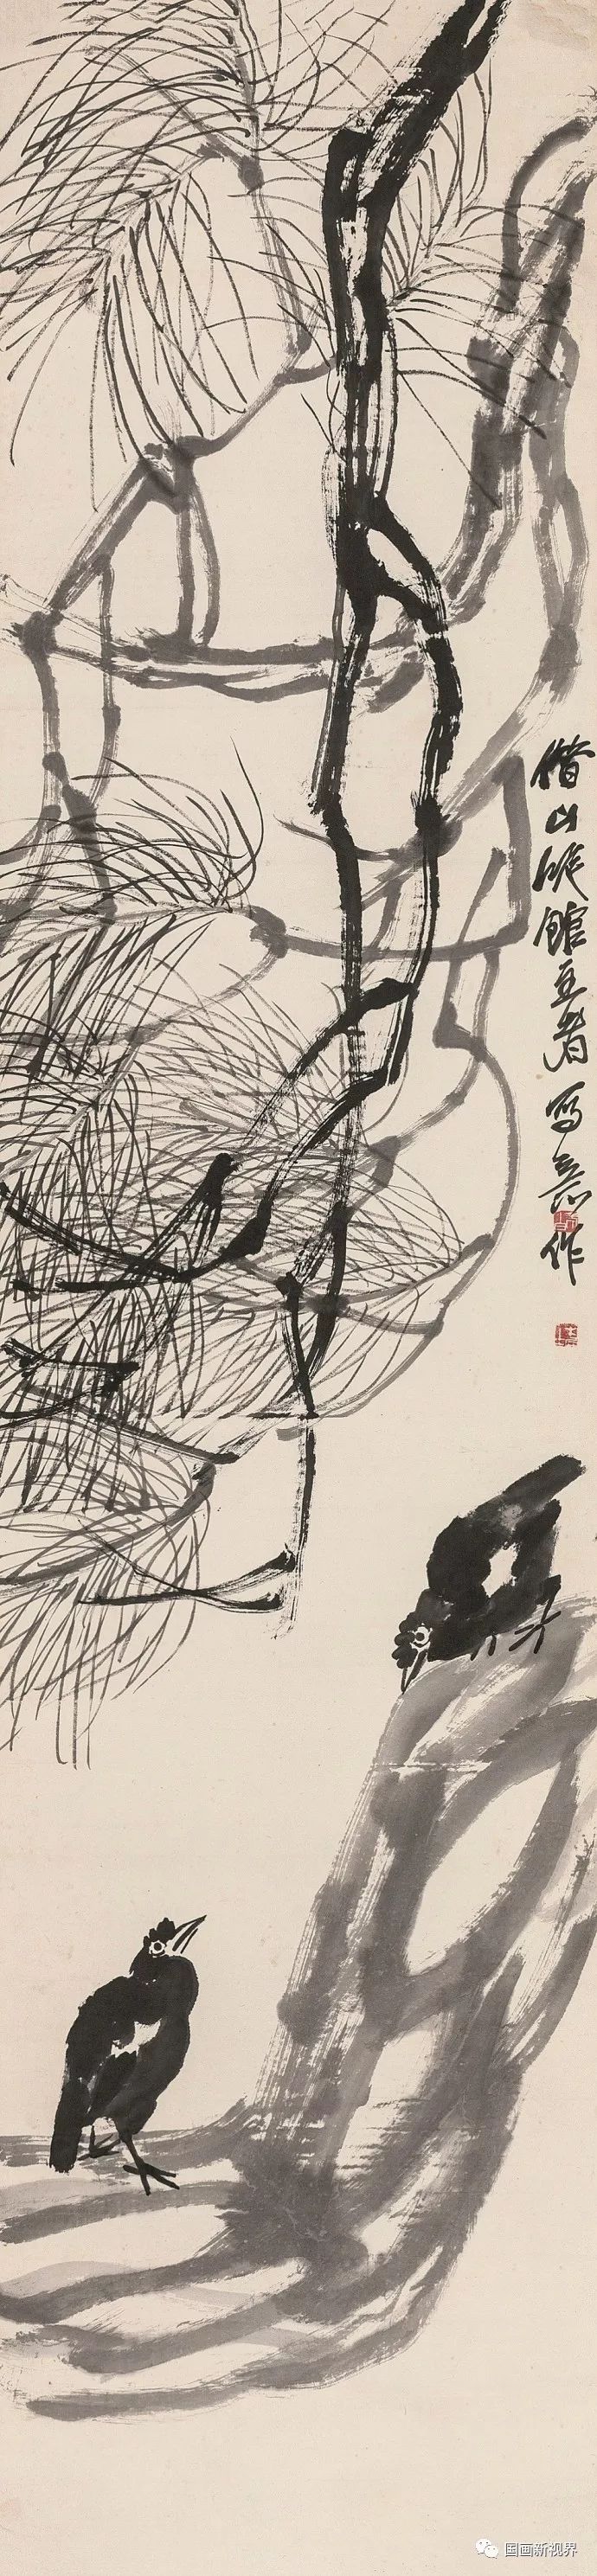 借山吟館主者寫意作
国画新视界